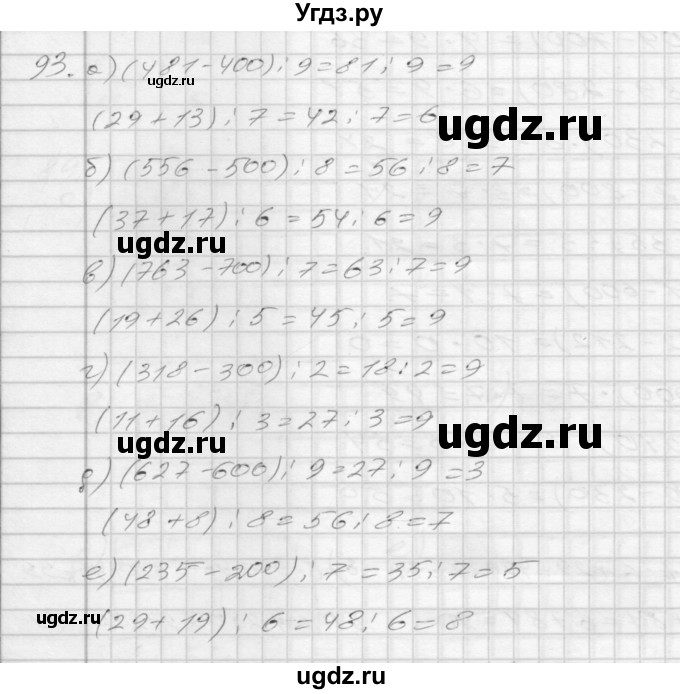 Угдз.ру
93. а) (481-400) : 9 = 81 : 9 = 9
ugdz.ru
(29+13) : 7 = 42 : 7 = 6
ugdz.ru
б) (556-500) : 8 = 56 : 8 = 7
(37+17) : 6 = 54 : 6 = 9
ugdz.ru
ugdz.ru
в) (763-700) : 7 = 63 : 7 = 9
(19+26) : 5 = 45 : 5 = 9
г) (318-300) : 2 = 18 : 2 = 9
(11+16) : 3 = 27 : 3 = 9
ugdz.ru
ugdz.ru
д) (627-600) : 9 = 27 : 9 = 3
(48+8) : 8 = 56 : 8 = 7
е) (235-200) : 7 = 35 : 7 = 5
ugdz.ru
(29+19) : 6 = 48 : 6 = 8
ugdz.ru
ugdz.ru